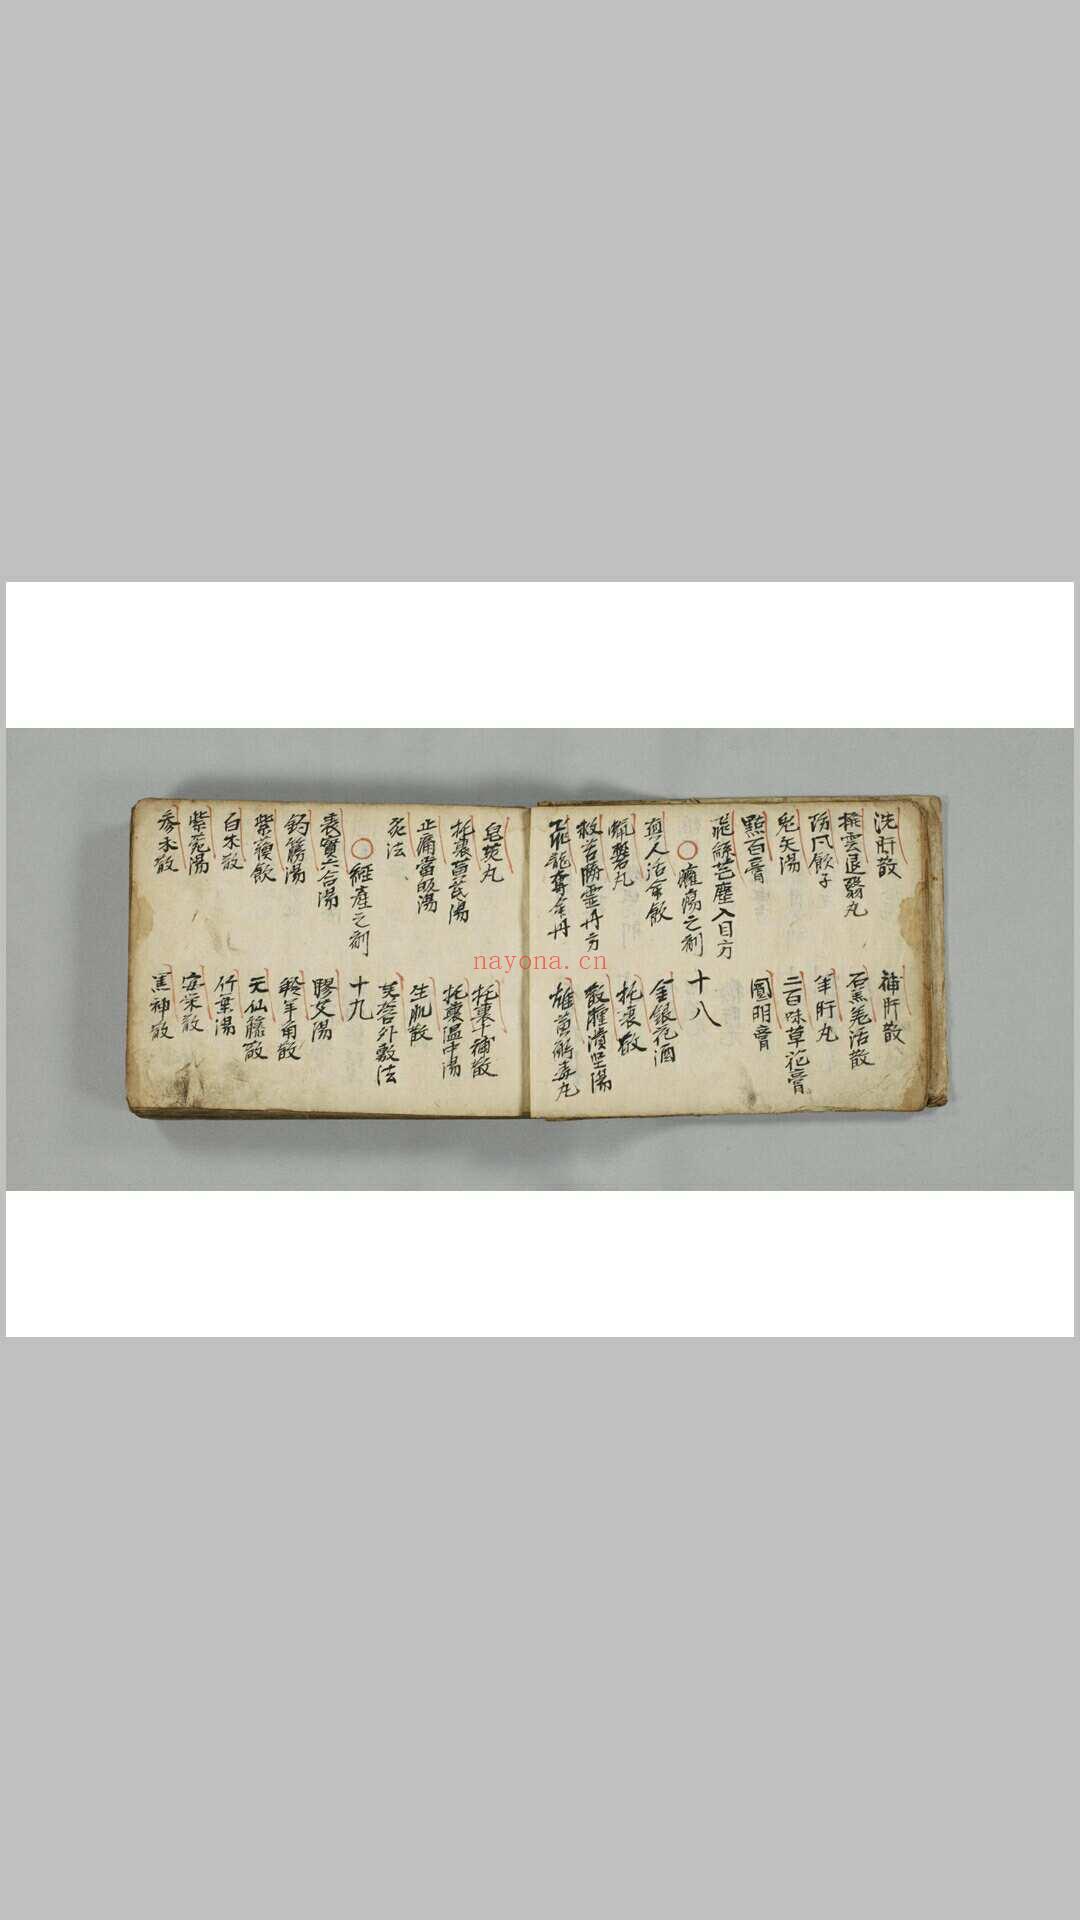 洗肝散
補肝散
撥雲退翳丸
石羔羌活散
防风飲子
羊肝丸
兎矢湯
二百味草花膏
點百膏
圓明膏
飛絲芒塵入目方
癰瘍之剤 十八
真人活命飲
金銀花酒
蝋礬丸
托裏散
救苦勝霊丹方
散腫潰堅湯
飛龍奪命丹
雄黄解毒丸
皂莢丸
托裏十補散
托裏黄芪湯
托裏温中湯
止痛當皈湯
生肌散
灸法
芙蓉外敷法
經產之剤 十九
表實六合湯
膠艾湯
鈎籐湯
羚羊角散
紫蘓飲
天仙籐散
白朮散
竹葉湯
紫菀湯
安栄散
参朮散
黑神散
nayona.cn